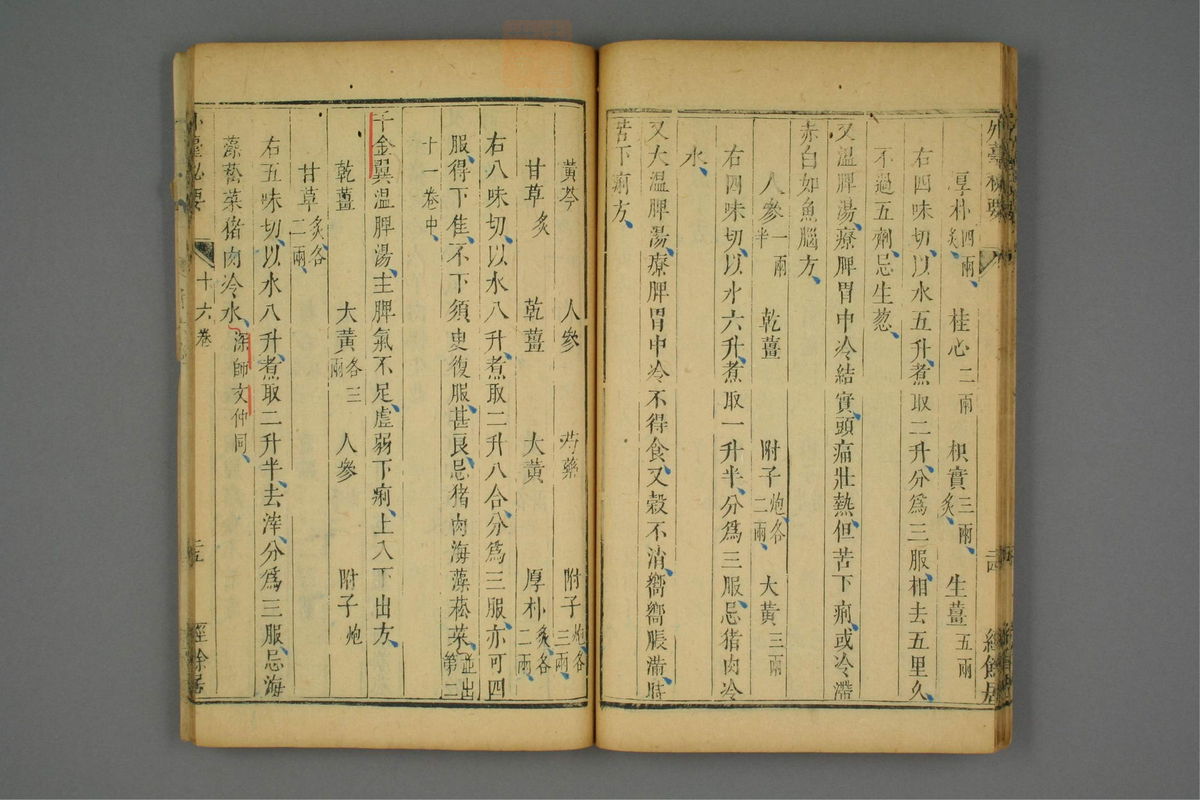 外臺秘要
厚朴四兩炙 桂心二兩 枳實三兩炙 生薑五兩
右四味切以水五升煮取二升分爲三服相去五里久
不過五劑忌生葱
又溫脾湯療脾胃中冷結實頭痛壯熱但苦下痢或冷滯
赤白如魚腦方
人參一兩半 乾薑 附子炮各二兩 大黃三兩
右四味切以水六升煮取一升半分爲三服忌猪肉冷
水
又大溫脾湯療脾胃中冷不得食又穀不消嚮嚮脹滿時
苦下痢方
黃芩 人參 芍藥 附子炮各三兩
甘草炙 乾薑 大黃 厚朴炙各二兩
右八味切以水八升煮取二升八合分爲三服亦可四
服得下佳不下須臾復服甚良忌猪肉海藻菘菜並出第二
十一卷中
千金翼溫脾湯主脾氣不足虛弱下痢上入下出方
乾薑 大黃各三兩 人參 附子炮
甘草炙各二兩
右五味切以水八升煮取二升半去滓分爲三服忌海
藻菘菜猪肉冷水深師文仲同
外臺秘要 十六卷 二五 經餘居